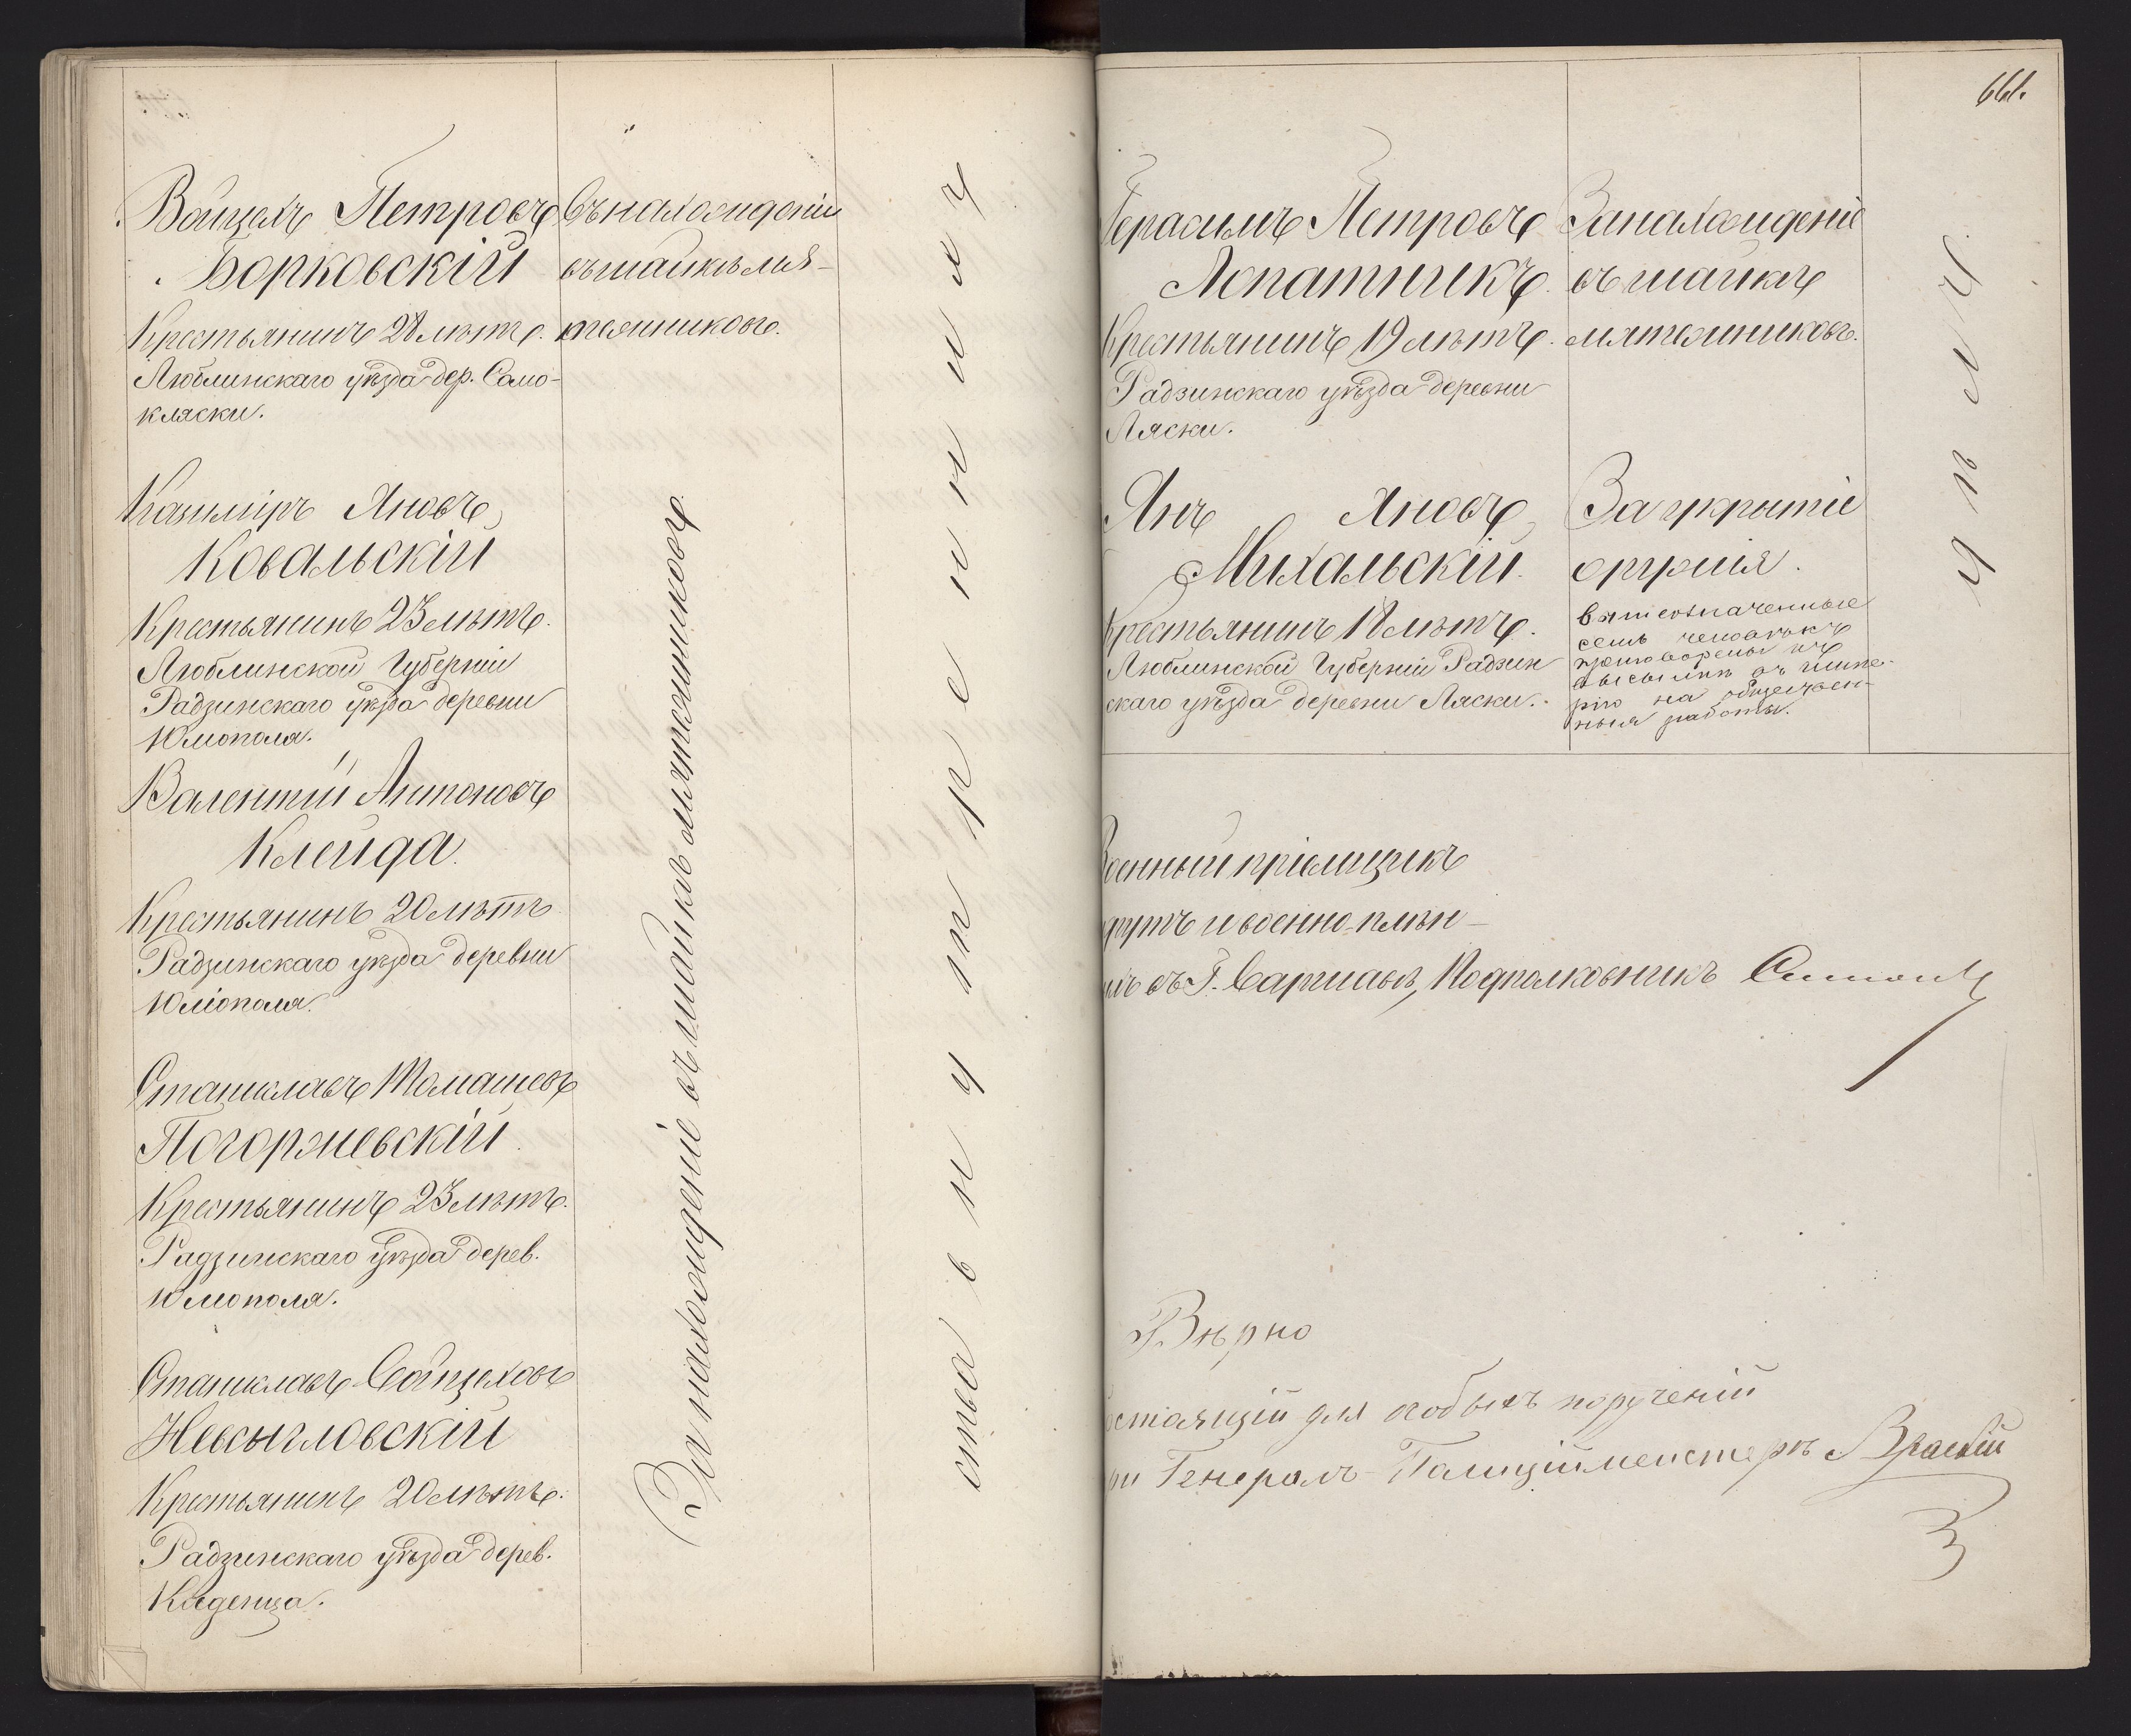 Войцехъ Петровъ
Борковскій
Крестьянинъ 28 лѣтъ.
Люблинскаго уѣзда дер. Само-
кляски.
Въ нахожденіи
въ шайкѣ мя-
тежниковъ.
Казиміръ Яновъ
Ковальскій
Крестьянинъ 23 лѣтъ.
Люблинской Губерніи
Радзинскаго уѣзда деревни
Юлiополя.
Валентій Антоновъ
Клейда.
Крестьянинъ 20 лѣтъ
Радзинскаго уѣзда деревни
Юліополя.
Станиславъ Томашевъ
Погоржевскій
Крестьянинъ 23 лѣтъ.
Радзинскаго уѣзда дерев.
Юлiополя.
Станиславъ Войцеховъ
Невенгловскій
Крестьянинъ 20 лѣтъ.
Радзинскаго уѣзда дерев.
За нахожденіе въ шайкѣ мятежниковъ
ства внутреннихъ
661.
Герасимъ Петровъ
Лопатникъ.
Крестьянинъ 19 лѣтъ.
Радзинскаго уѣзда деревни
Ляски.
За нахожденіе
въ шайкѣ
мятежниковъ.
Янъ Яновъ
Михальскій.
Крестьянинъ 18 лѣтъ.
Люблинской Губерніи Радзин
скаго уѣзда деревни Ляски.
За укрытіе
оружія.
вышеозначенные
семь человѣкъ
приговорены къ
высылкѣ въ импе-
рію на обществен-
ныя работы.
дѣлъ
Военный пріемщикъ
рекрутъ и военно-плѣн-
ныхъ въ Г. Варшавѣ, Подполковникъ
Вѣрно
Состоящій для особыхъ порученій
при Генералъ-Полицiймейстерѣ